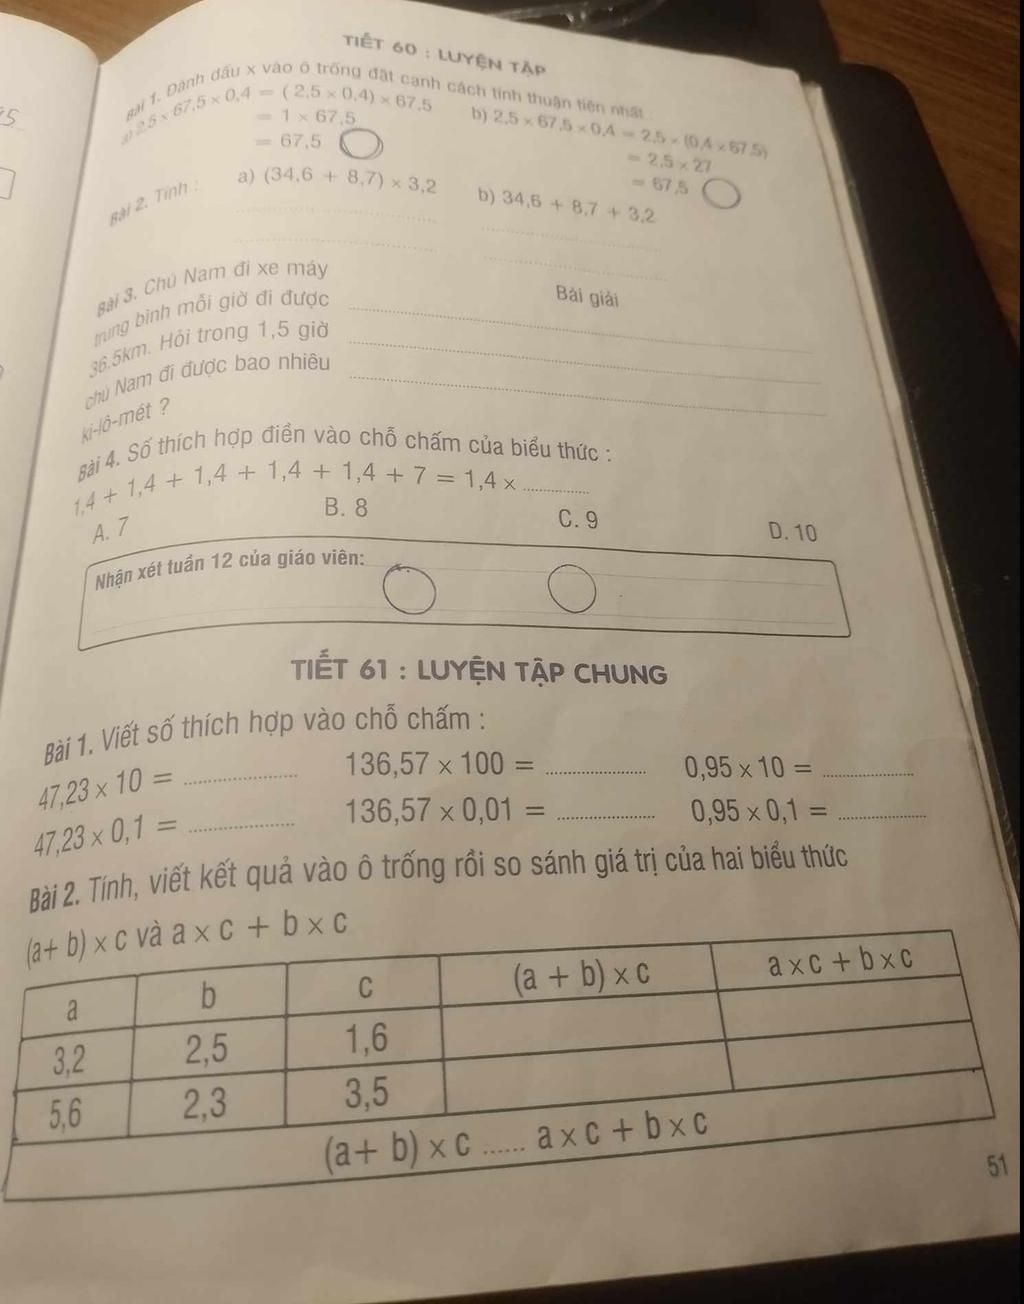 TIẾT 60 : LUYỆN TẬP
Bài 1. Đánh dấu x vào ô trống đặt cạnh cách tính thuận tiện nhất
a) 2,5 × 67,5 × 0,4 = ( 2,5 × 0,4) × 67,5
= 1 × 67,5
= 67,5
b) 2,5 × 67,5 × 0,4 = 2,5 × (0,4 × 67,5)
= 2,5 × 27
= 67,5
Bài 2. Tính :
a) (34,6 + 8,7) × 3,2
b) 34,6 + 8,7 + 3,2
Bài 3. Chú Nam đi xe máy
trung bình mỗi giờ đi được
36.5km. Hỏi trong 1,5 giờ
chú Nam đi được bao nhiêu
ki-lô-mét ?
Bài giải
Bài 4. Số thích hợp điền vào chỗ chấm của biểu thức :
1,4 + 1,4 + 1,4 + 1,4 + 1,4 + 7 = 1,4 × ............
A. 7 B. 8 C. 9 D. 10
Nhận xét tuần 12 của giáo viên:
TIẾT 61 : LUYỆN TẬP CHUNG
Bài 1. Viết số thích hợp vào chỗ chấm :
47,23 × 10 = .................. 136,57 × 100 = .................. 0,95 × 10 = ..................
47,23 × 0,1 = .................. 136,57 × 0,01 = .................. 0,95 × 0,1 = ..................
Bài 2. Tính, viết kết quả vào ô trống rồi so sánh giá trị của hai biểu thức
(a+ b) × c và a × c + b × c
a b c (a + b) × c a × c + b × c
3,2 2,5 1,6
5,6 2,3 3,5
(a+ b) × c ...... a × c + b × c
51